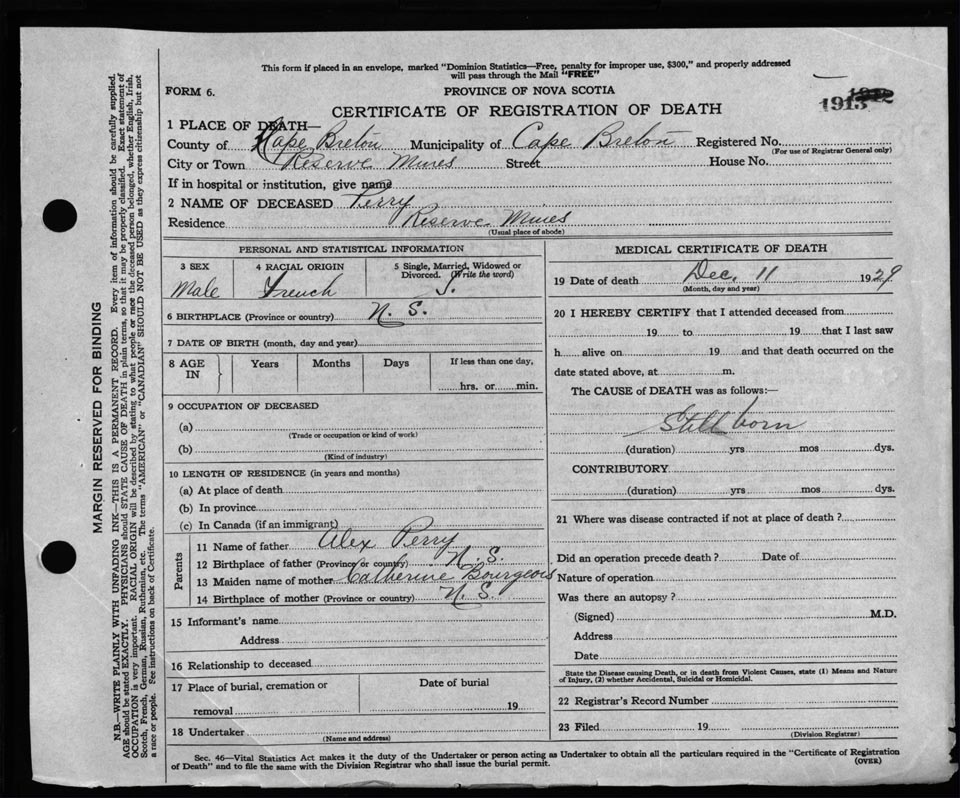 This form if placed in an envelope, marked "Dominion Statistics—Free, penalty for improper use, $300," and properly addressed
will pass through the Mail "FREE"
FORM 6.
PROVINCE OF NOVA SCOTIA
CERTIFICATE OF REGISTRATION OF DEATH
1913
1 PLACE OF DEATH—
County of Cape Breton Municipality of Cape Breton Registered No.
(For use of Registrar General only)
City or Town Reserve Mines Street House No.
If in hospital or institution, give name
2 NAME OF DECEASED Perry
Residence Reserve Mines
(Usual place of abode)
PERSONAL AND STATISTICAL INFORMATION
3 SEX
Male
4 RACIAL ORIGIN
French
5 Single, Married, Widowed or
Divorced. (Write the word)
S.
6 BIRTHPLACE (Province or country) N. S.
7 DATE OF BIRTH (month, day and year)
8 AGE
IN
Years Months Days
If less than one day,
hrs. or min.
9 OCCUPATION OF DECEASED
(a)
(Trade or occupation or kind of work)
(b)
(Kind of industry)
10 LENGTH OF RESIDENCE (in years and months)
(a) At place of death
(b) In province
(c) In Canada (if an immigrant)
Parents
11 Name of father Alex Perry
12 Birthplace of father (Province or country) N. S.
13 Maiden name of mother Catherine Bourgeois
14 Birthplace of mother (Province or country) N. S.
15 Informant's name
Address
16 Relationship to deceased
17 Place of burial, cremation or
removal
Date of burial
19
18 Undertaker
(Name and address)
MEDICAL CERTIFICATE OF DEATH
19 Date of death Dec. 11 1929
(Month, day and year)
20 I HEREBY CERTIFY that I attended deceased from
19 to 19 that I last saw
h alive on 19 and that death occurred on the
date stated above, at m.
The CAUSE of DEATH was as follows:—
Still born
(duration) yrs mos dys.
CONTRIBUTORY
(duration) yrs mos dys.
21 Where was disease contracted if not at place of death?
Did an operation precede death? Date of
Nature of operation
Was there an autopsy?
(Signed) M.D.
Address
Date
State the Disease causing Death, or in Death from Violent Causes, state (1) Means and Nature
of Injury, (2) whether Accidental, Suicidal or Homicidal.
22 Registrar's Record Number
23 Filed 19
(Division Registrar)
Sec. 46—Vital Statistics Act makes it the duty of the Undertaker or person acting as Undertaker to obtain all the particulars required in the "Certificate of Registration
of Death" and to file the same with the Division Registrar who shall issue the burial permit.
(OVER)
MARGIN RESERVED FOR BINDING
N.B.—WRITE PLAINLY WITH UNFADING INK—THIS IS A PERMANENT RECORD. Every item of information should be carefully supplied.
AGE should be stated EXACTLY. PHYSICIANS should STATE CAUSE OF DEATH in plain terms, so that it may be properly classified. Exact statement of
OCCUPATION is very important. RACIAL ORIGIN will be described by stating to what people or race the deceased person belonged, whether English, Irish,
Scotch, French, German, Russian, Ruthenian, etc. The terms "AMERICAN" or "CANADIAN" SHOULD NOT BE USED as they express citizenship but not
a race or people. See instructions on back of Certificate.